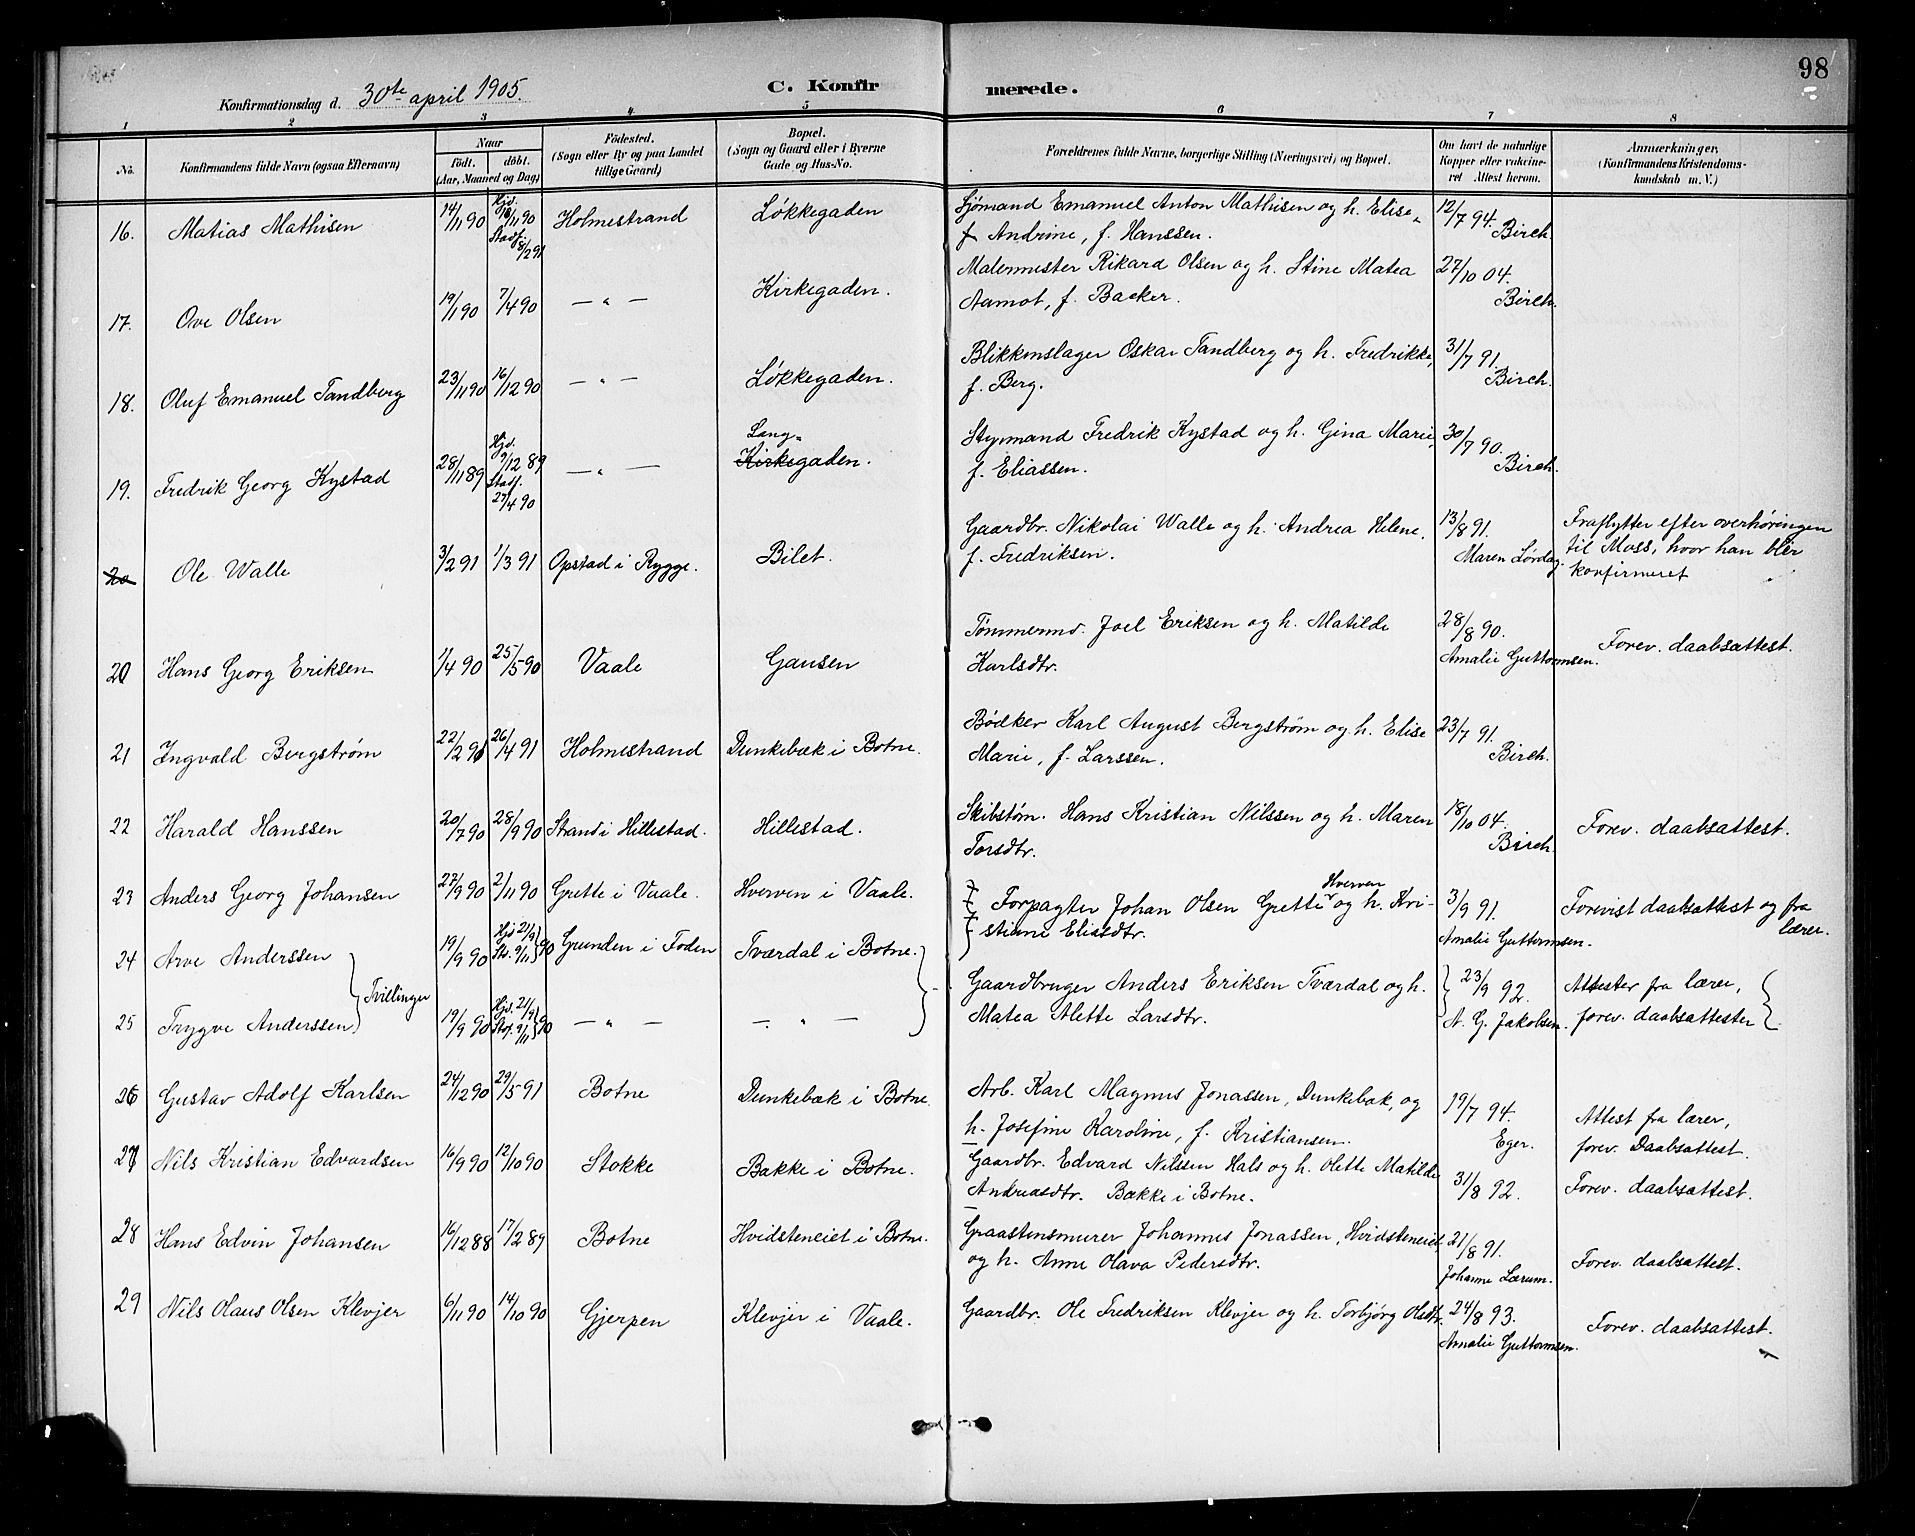 98
Konfirmationsdag d. 30te april 1905.
C. Konfirmerede.
1 2 3 4 5 6 7 8
No.
Konfirmandens fulde Navn (ogsaa Efternavn)
Naar
født. døbt.
(Aar, Maaned og Dag)
Fødested.
(Sogn eller By og paa Landet
tillige Gaard)
Bopæl.
(Sogn og Gaard eller i Byerne
Gade og Hus-No.
Forældrenes fulde Navne, borgerlige Stilling (Næringsvei) og Bopæl.
Om havt de naturlige
Kopper eller vakcine-
ret Attest herom.
Anmærkninger,
(Konfirmandens Kristendoms-
kundskab m. V.)
16. Matias Mathisen 14/11 90 Hjd. 18/11 90 Stadf. 8/2 91 Holmestrand Løkkegaden Sjømand Emanuel Anton Mathisen og h. Elise
Andrine, f. Hanssen. 12/7 94. Birch.
17. Ove Olsen 19/1 90 7/4 90 — " — Kirkegaden. Malermester Rikard Olsen og h. Stine Matea
Aamot, f. Backer. 27/10 04. Birch.
18. Oluf Emanuel Tandberg 23/11 90 16/12 90 — " — Løkkegaden. Blikkenslager Oskar Tandberg og h. Fredrikke,
f. Berg. 31/7 91. Birch.
19. Fredrik Georg Kystad 28/11 89 Hjd. 9/12 89 Stadf. 27/4 90 — " — Lang- Kirkegaden. Styrmand Fredrik Kystad og h. Gina Marie,
f. Eliassen. 30/7 90. Birch.
20 Ole Walle 3/2 91 1/3 91 Opstad i Rygge. Bilet. Gaardbr. Nikolai Walle og h. Andrea Helene,
f. Fredriksen. 13/8 91. Maren Lørdag. Fraflytter efter overhøringen
til Moss, hvor han blir
konfirmeret
20 Hans Georg Eriksen 1/4 90 25/5 90 Vaale Gausen Tømmermd. Joel Eriksen og h. Matilde
Karlsdtr. 28/8 90. Amalie Guttormsen. Forev. daabsattest.
21 Ingvald Bergstrøm 22/2 91 26/4 91 Holmestrand Dunkebæk i Botne. Bødker Karl August Bergstrøm og h. Elise
Marie, f. Larssen. 23/7 91. Birch.
22 Harald Hanssen 20/7 90 28/9 90 Strand i Hillestad. Hillestad. Skibstøm. Hans Kristian Nilssen og h. Maren
Torsdtr. 18/10 04. Birch Forev. daabsattest.
23 Anders Georg Johansen 27/9 90 2/11 90 Grette i Vaale. Hverven i Vaale. Forpagter Johan Olsen Grette Hverven og h. Kri-
stiane Eliasdtr. 3/9 91. Amalie Guttormsen. Forevist daabsattest og fra
lærer.
24 Arve Anderssen 19/9 90 Hjd 21/9 Sts. 9/11 90 Grunden i Foden Tværdal i Botne.
Tvillinger Gaardbruger Anders Eriksen Tværdal og h.
Matea Alette Larsdtr. 23/9 92. A. G. Jakobsen. Attester fra lærer,
forev. daabsattester
25 Trygve Anderssen 19/9 90 Hjd. 21/9 Stf. 9/11 90 — " — — " —
26 Gustav Adolf Karlsen 24/12 90 29/5 91 Botne Dunkebæk i Botne. Arb. Karl Magnus Jonassen, Dunkebæk, og
h. Josefine Karoline, f. Kristiansen. 19/7 94. Eger. Attest fra lærer,
forev. Daabsattest.
27 Nils Kristian Edvardsen 16/9 90 12/10 90 Stokke Bakke i Botne. Gaardbr. Edvard Nilssen Hals og h. Olette Matilde
Andreasdtr. Bakke i Botne. 31/8 92. Forev. daabsattest.
28 Hans Edvin Johansen 16/12 88 17/2 89 Botne Hvidsteneiet i Botne. Graastensmurer Johannes Jonassen, Hvidsteneiet,
og h. Anne Olava Pedersdtr. 21/8 91. Johanne Lærum. Forev. daabsattest.
29 Nils Olaus Olsen Klevjer 6/11 90 14/10 90 Gjerpen Klevjer i Vaale. Gaardbr. Ole Fredriksen Klevjer og h. Torbjørg Olsdtr. 24/8 93.
Amalie Guttormsen. Forev. daabsattest.